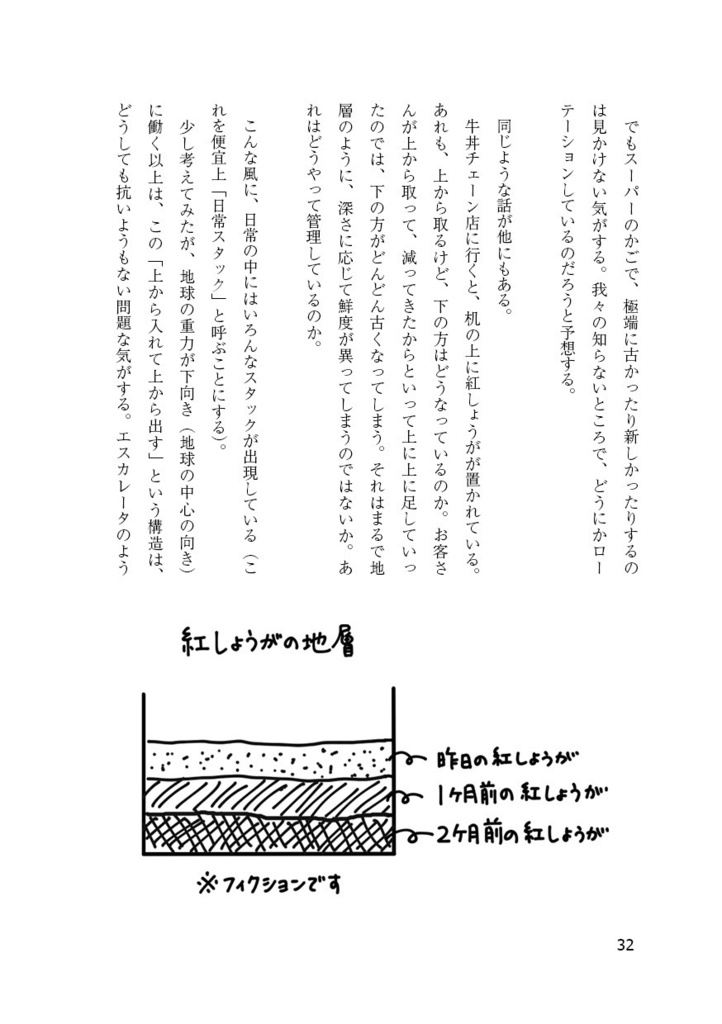 でもスーパーのかごで、極端に古かったり新しかったりするの
は見かけない気がする。我々の知らないところで、どうにかロー
テーションしているのだろうと予想する。
同じような話が他にもある。
牛丼チェーン店に行くと、机の上に紅しょうがが置かれている。
あれも、上から取るけど、下の方はどうなっているのか。お客さ
んが上から取って、減ってきたからといって上に上に足していっ
たのでは、下の方がどんどん古くなってしまう。それはまるで地
層のように、深さに応じて鮮度が異ってしまうのではないか。あ
れはどうやって管理しているのか。
こんな風に、日常の中にはいろんなスタックが出現している（こ
れを便宜上「日常スタック」と呼ぶことにする）。
少し考えてみたが、地球の重力が下向き（地球の中心の向き）
に働く以上は、この「上から入れて上から出す」という構造は、
どうしても抗いようもない問題な気がする。エスカレータのよう
紅しょうがの地層
昨日の紅しょうが
1ヶ月前の紅しょうが
2ヶ月前の紅しょうが
※フィクションです
32